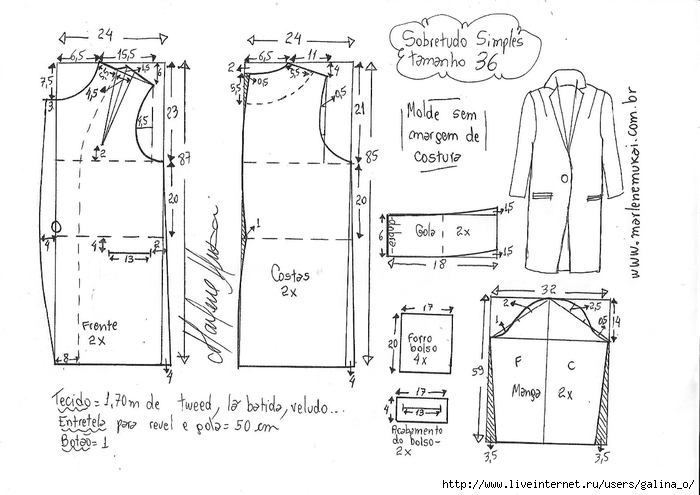 Sobretudo Simples
tamanho 36
Molde sem
margem de
costura
www.marlenemukai.com.br
24
6,5
15,5
7,5
3
4,5
1,5
6
4,5
23
87
2
20
4
4
13
2
Frente
2x
8
4
24
6,5
11
2
0,5
5,5
5,5
4
0,5
21
85
20
1
Costas
2x
4
Marlene Mukai
1,5
6
dobra
Gola 2x
1,5
18
17
20
Forro
bolso
4x
17
4
13
Acabamento
do bolso-
2x
32
2
2,5
1
0,5
14
59
F C
Manga 2x
3,5
3,5
Tecido = 1,70m de tweed, lã batida, veludo...
Entretela para revel e gola = 50 cm
Botão = 1
http://www.liveinternet.ru/users/galina_o/